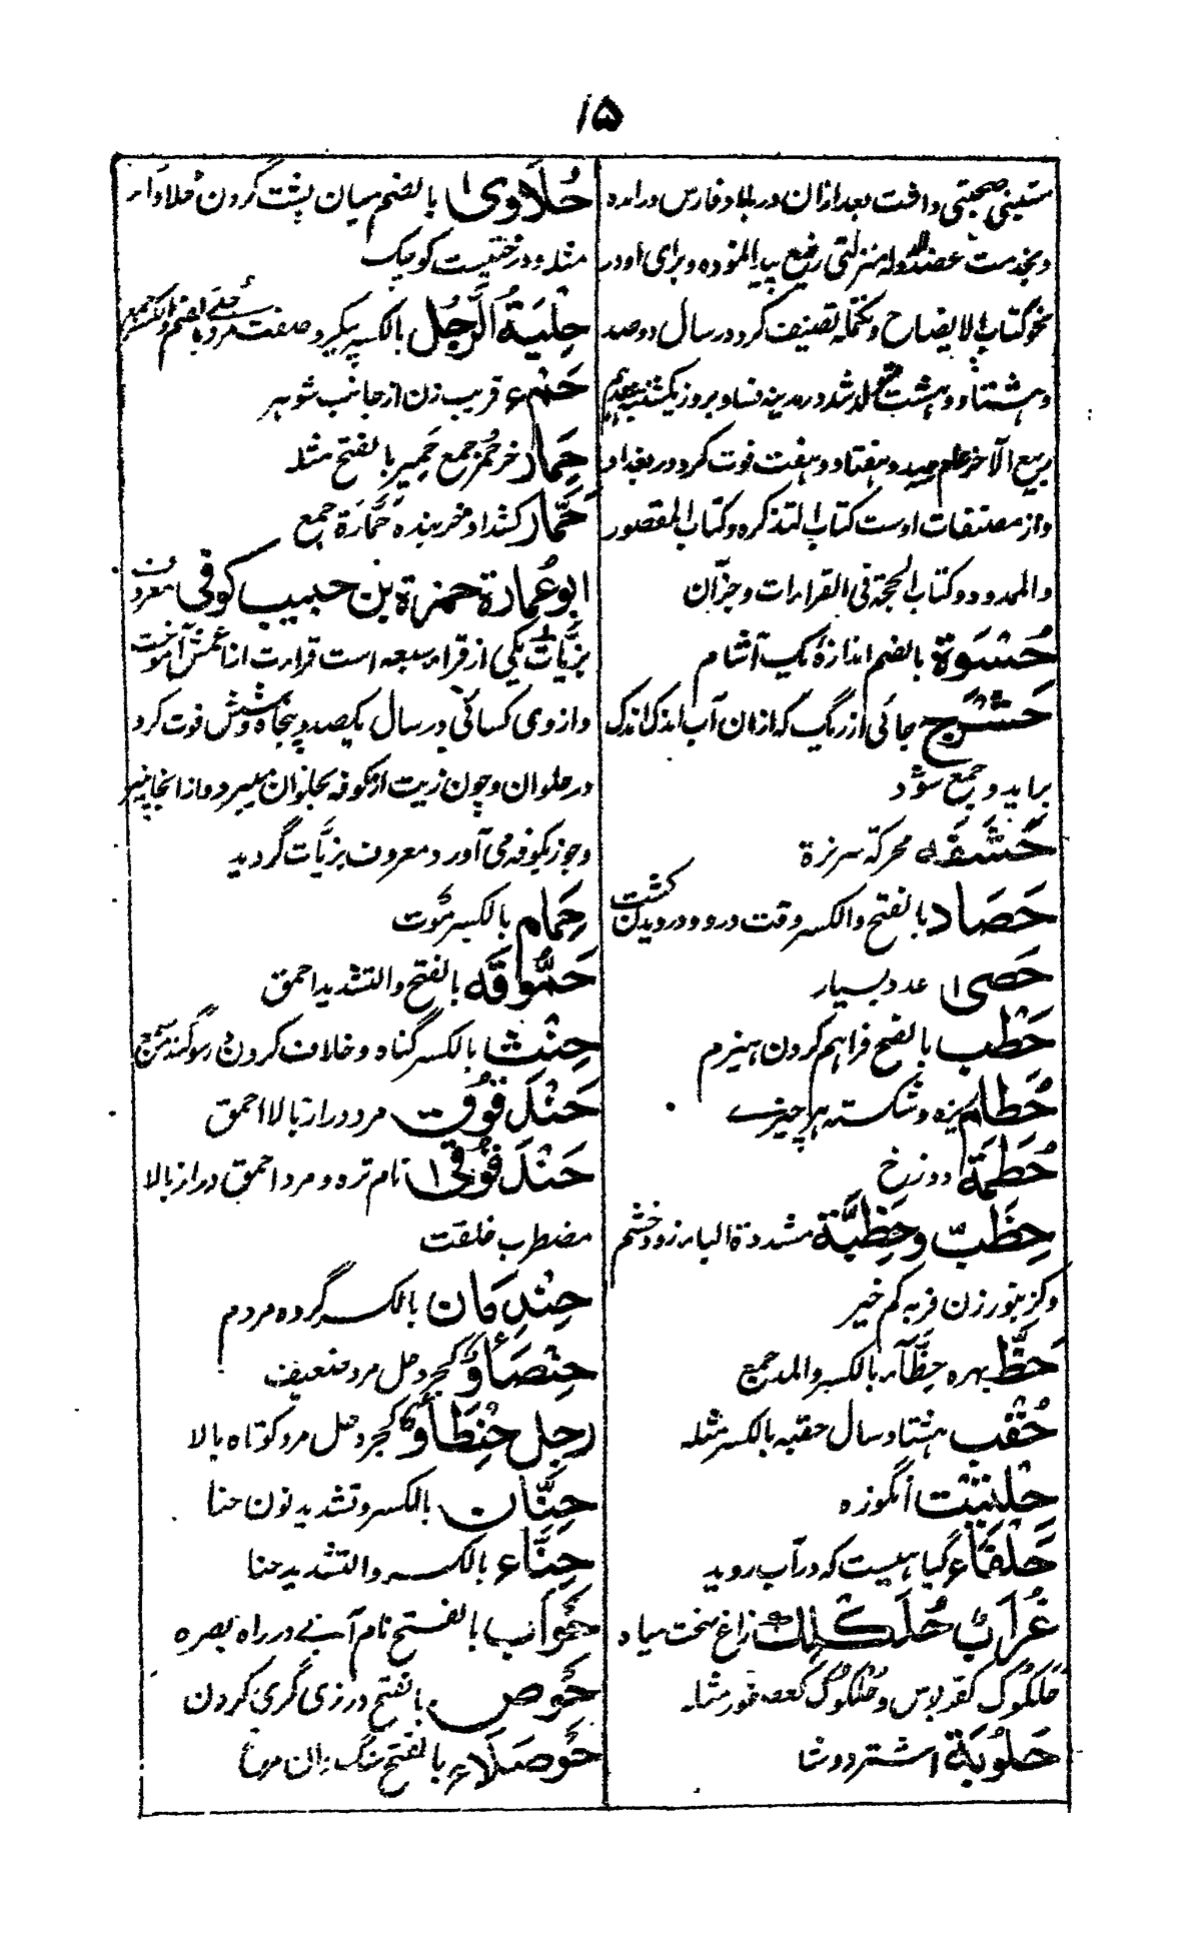 ۱۵
متبنی صحبتی داشت بعد ازان در بلاد فارس درآمده
و بخدمت عضد الدوله منزلتی رفیع پیدا نموده و برای او در
نحو کتاب الایضاح و تکمله تصنیف کرد در سال دوصد
و هشتاد و هشت متولد شد در مدینه فسا و بروز یکشنبه
ربیع الآخر سیصد و هفتاد و هفت فوت کرد در بغداد
و از مصنفات اوست کتاب التذکره و کتاب المقصور
والممدود و کتاب الحجة فی القراءات و جزآن
حُسْوَة بالضم اندازهٔ یک آشام
حَشْرَج جائی از ریگ که ازان آب اندک اندک
براید و جمع شود
حَشَفَه محرکة سر نره
حَصَاد بالفتح والکسر وقت درو و درویدن کشت
حَصیٰ عدد بسیار
حَطْب بالفتح فراهم کردن هیزم
حُطَام ریزه و شکسته هر چیزے
حُطَمَة دوزخ
حِظَبّ و حِظِبَّة مشددة الباء زود خشم
و کز بتور زن فربه کم خیر
حَظّ بهره حِظَّآء بالکسر والمد جمع
حُقْب هشتاد سال حقبه بالکسر مثله
حِلْتِیْت انگوزه
حَلْفَاء گیاهیست که در آب روید
غُرَابٌ حُلَکْلِك زاغ سخت سیاه
حَلَکُوک کقربوس و حُلْکُوک کعصفور مثله
حَلُوْبَة اشتر دوشا
حُلَاویٰ بالضم میان پشت گردن حلاواء
مثله و درختیست کوچک
حِلْیَةُ الرَّجُل بالکسر پیکر و صفت مرد حُلی بالضم والکسر جمع
حَمْء قریب زن از جانب شوهر
حِمَار خر حُمُر جمع حَمِیر بالفتح مثله
حَمَّار کشنداد خربنده حَمَّارَة جمع
ابو عُمَارَة حمزة بن حبیب کوفی معروف
بزیّات یکی از قراء سبعه است قراءت از اعمش آموخت
و از وی کسائی در سال یکصد و پنجاه و شش فوت کرد
در حلوان و چون زیت از کوفه بحلوان میبرد و از انجا پنیر
و جوز بکوفه می آورد معروف بزیّات گردید
حِمَام بالکسر موت
حَمُّوْقَه بالفتح والتشدید احمق
حِنْث بالکسر گناه و خلاف کردن در سوگند
حَنْدَقُوْق مرد دراز بالا احمق
حَنْدَقُوْقیٰ نام تره و مرد احمق دراز بالا
مضطرب خلقت
حِنْدِمَان بالکسر گروه مردم
حِنْصَأْوٌ کجردحل مرد ضعیف
رجل حِنْطَأْوٌ کجردحل مرد کوتاه بالا
حِنَّان بالکسر و تشدید نون حنا
حِنَّاء بالکسر والتشدید حنا
حَوْأَب بالفتح نام آبے در راه بصره
حَوْص بالفتح درزی گری کردن
حَوْصَلَاء بالفتح سنگدان مرغ